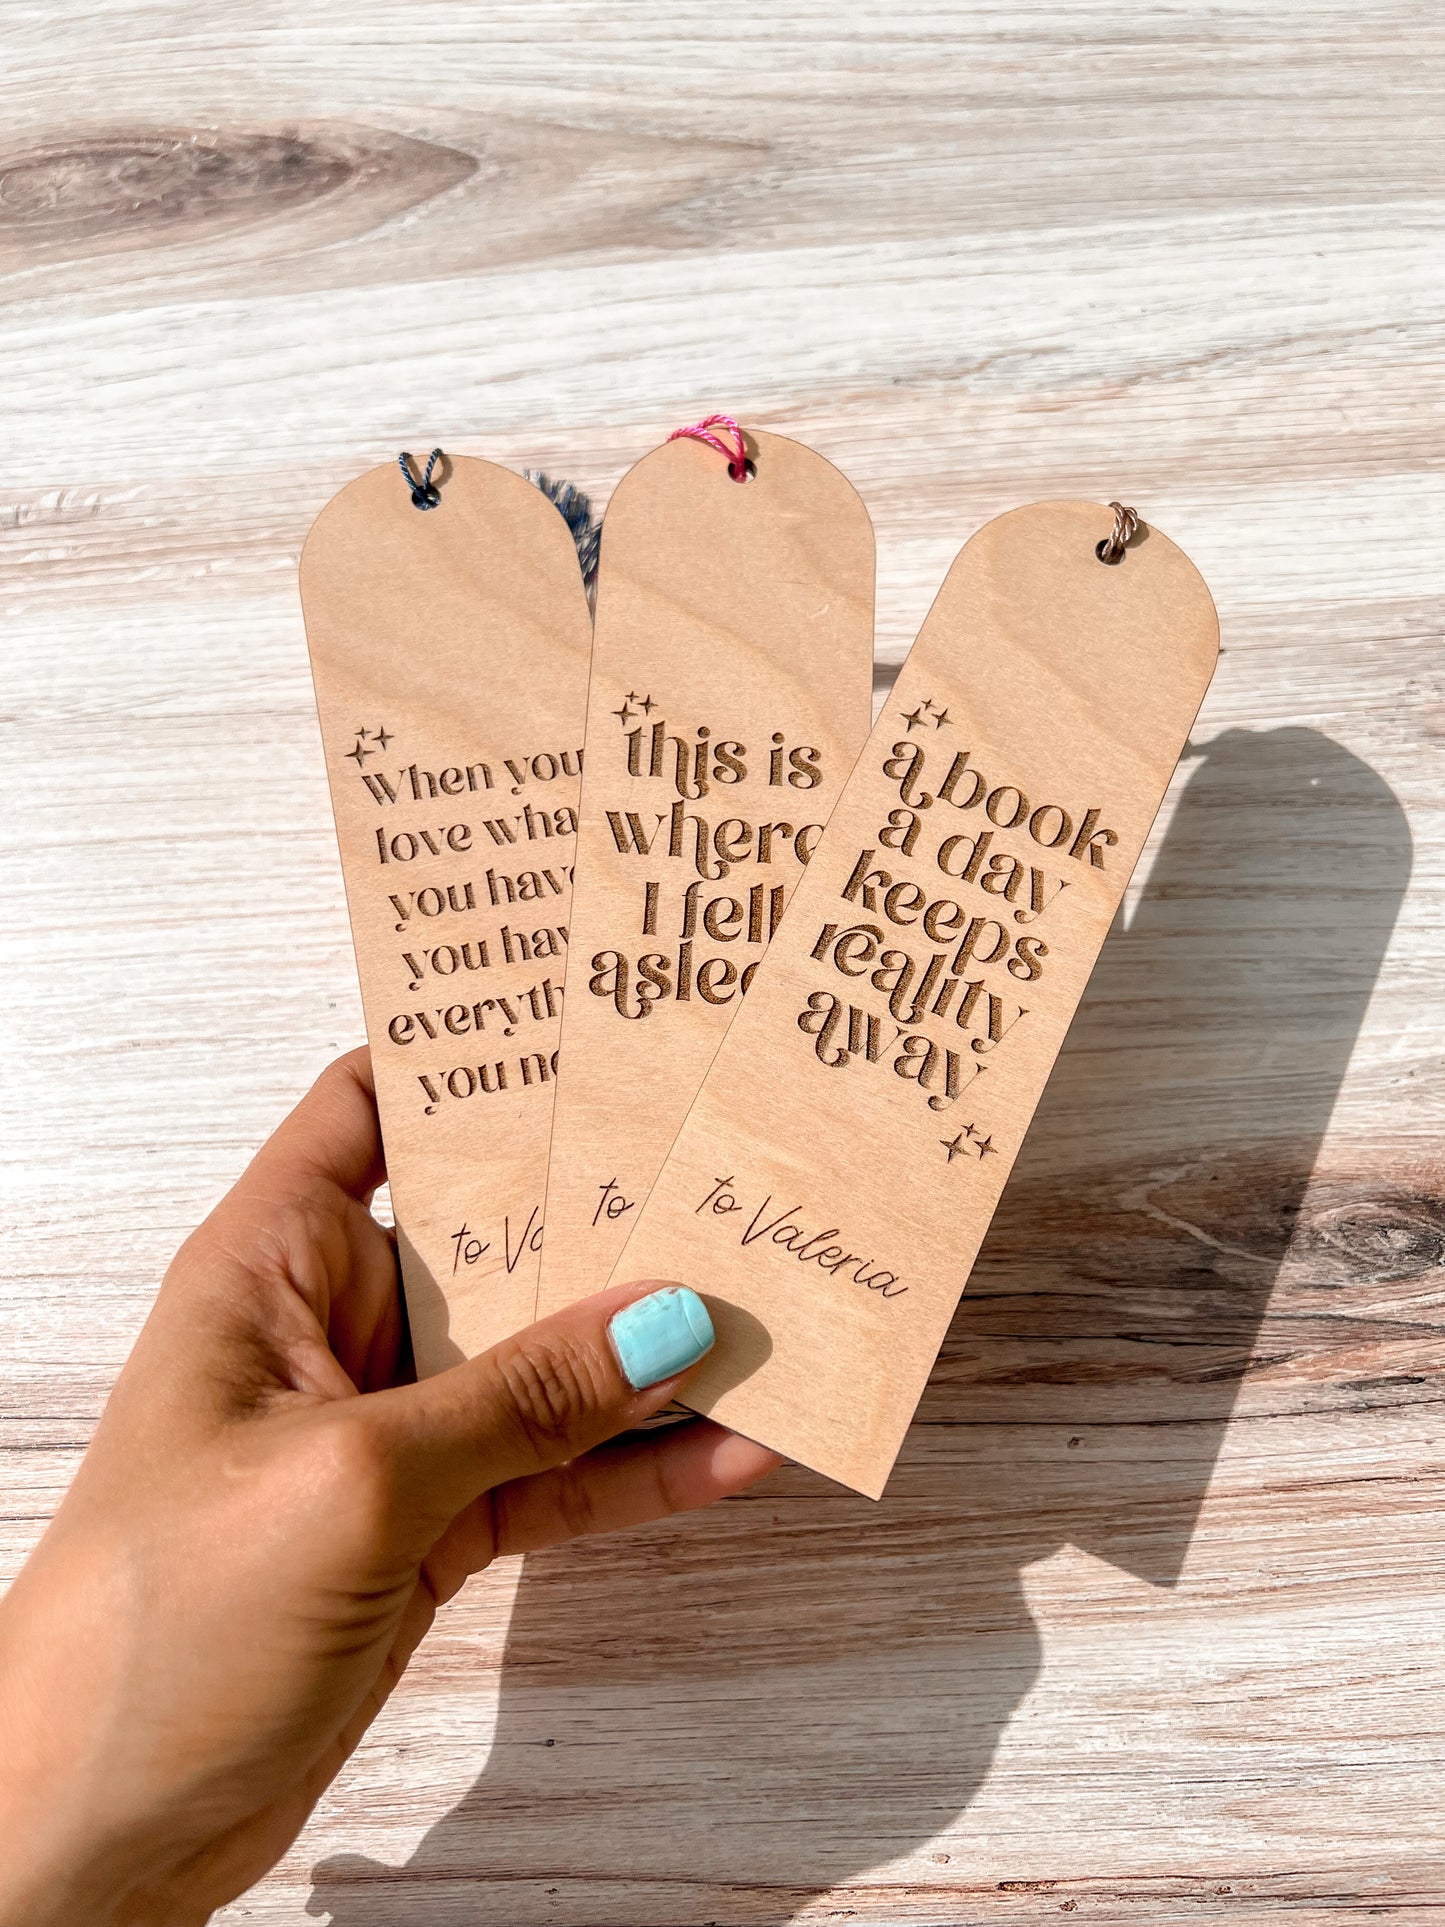 When you
love wha
you have
you hav
everyth
you ne
to Va
this is
where
I fell
aslee
to
a book
a day
keeps
reality
away
to Valeria